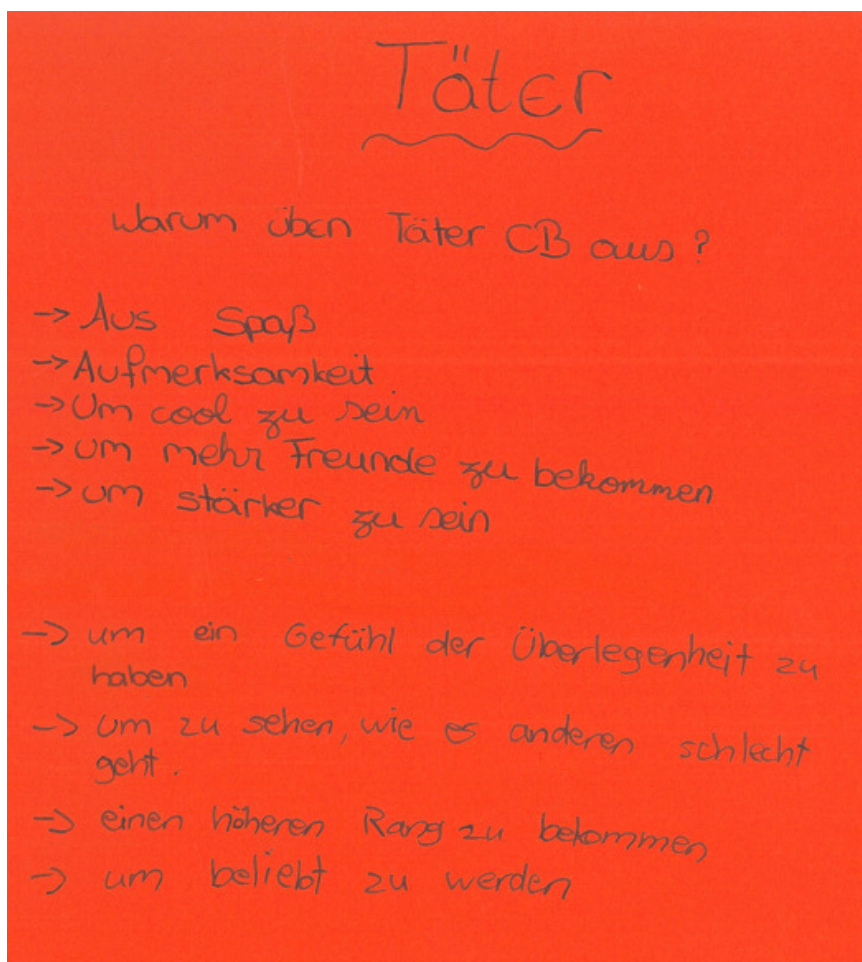 Täter
Warum üben Täter CB aus?
-> Aus Spaß
-> Aufmerksamkeit
-> Um cool zu sein
-> um mehr Freunde zu bekommen
-> um stärker zu sein
-> um ein Gefühl der Überlegenheit zu
haben
-> Um zu sehen, wie es anderen schlecht
geht.
-> einen höheren Rang zu bekommen
-> um beliebt zu werden